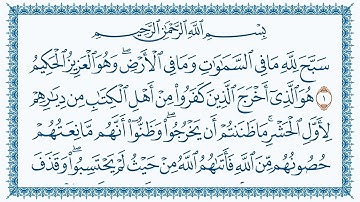 بِسْمِ اللَّهِ الرَّحْمَٰنِ الرَّحِيمِ
سَبَّحَ لِلَّهِ مَا فِي السَّمَٰوَٰتِ وَمَا فِي الْأَرْضِ ۖ وَهُوَ الْعَزِيزُ الْحَكِيمُ
١ هُوَ الَّذِي أَخْرَجَ الَّذِينَ كَفَرُوا مِنْ أَهْلِ الْكِتَٰبِ مِن دِيَٰرِهِمْ
لِأَوَّلِ الْحَشْرِ ۚ مَا ظَنَنتُمْ أَن يَخْرُجُوا ۖ وَظَنُّوا أَنَّهُم مَّانِعَتُهُمْ
حُصُونُهُم مِّنَ اللَّهِ فَأَتَىٰهُمُ اللَّهُ مِنْ حَيْثُ لَمْ يَحْتَسِبُوا ۖ وَقَذَفَ